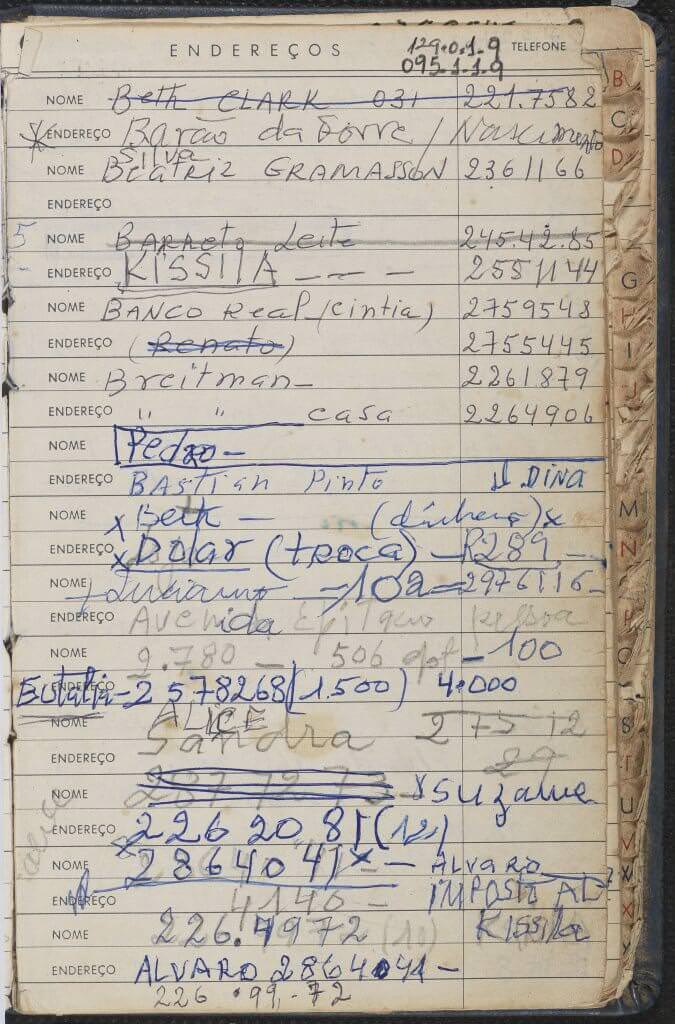 129.0.1.9
ENDEREÇOS TELEFONE
095.1.1.9
NOME Beth CLARK 031 221.7582
ENDEREÇO Barão da Torre / Nascimento
Silva
NOME Beatriz GRAMASSON 2361166
ENDEREÇO
NOME BARReto Leite 245.42.85
ENDEREÇO KISSILA --- 2551144
NOME BANCO Real (Cintia) 2759548
ENDEREÇO (Renato) 2755445
NOME Breitman- 2261879
ENDEREÇO " " casa 2264906
NOME Pedro-
ENDEREÇO BAStian Pinto DINA
NOME x Beth - (dinheiro) x
ENDEREÇO x DOLAR (troca) - R289 -
NOME Luciano - 102 = 2976116-
ENDEREÇO Avenida Epitacio Pessoa
NOME 2.780 - 506 apt - 100
ENDEREÇO Eutalia-2578268 (1.500) 4.000
ALICE
NOME Sandra 275 12
ENDEREÇO 29
NOME 287 72 73 Suzane
ENDEREÇO 226 2081 (12)
NOME 2864041 x - ALVARO
ENDEREÇO 4140 - IMPOSTO
NOME 226.4972 (10) Kissila
ENDEREÇO ALVARO 2864041-
226.99.-72
B
C
D
G
H
I
J
M
N
P
S
T
U
V
X